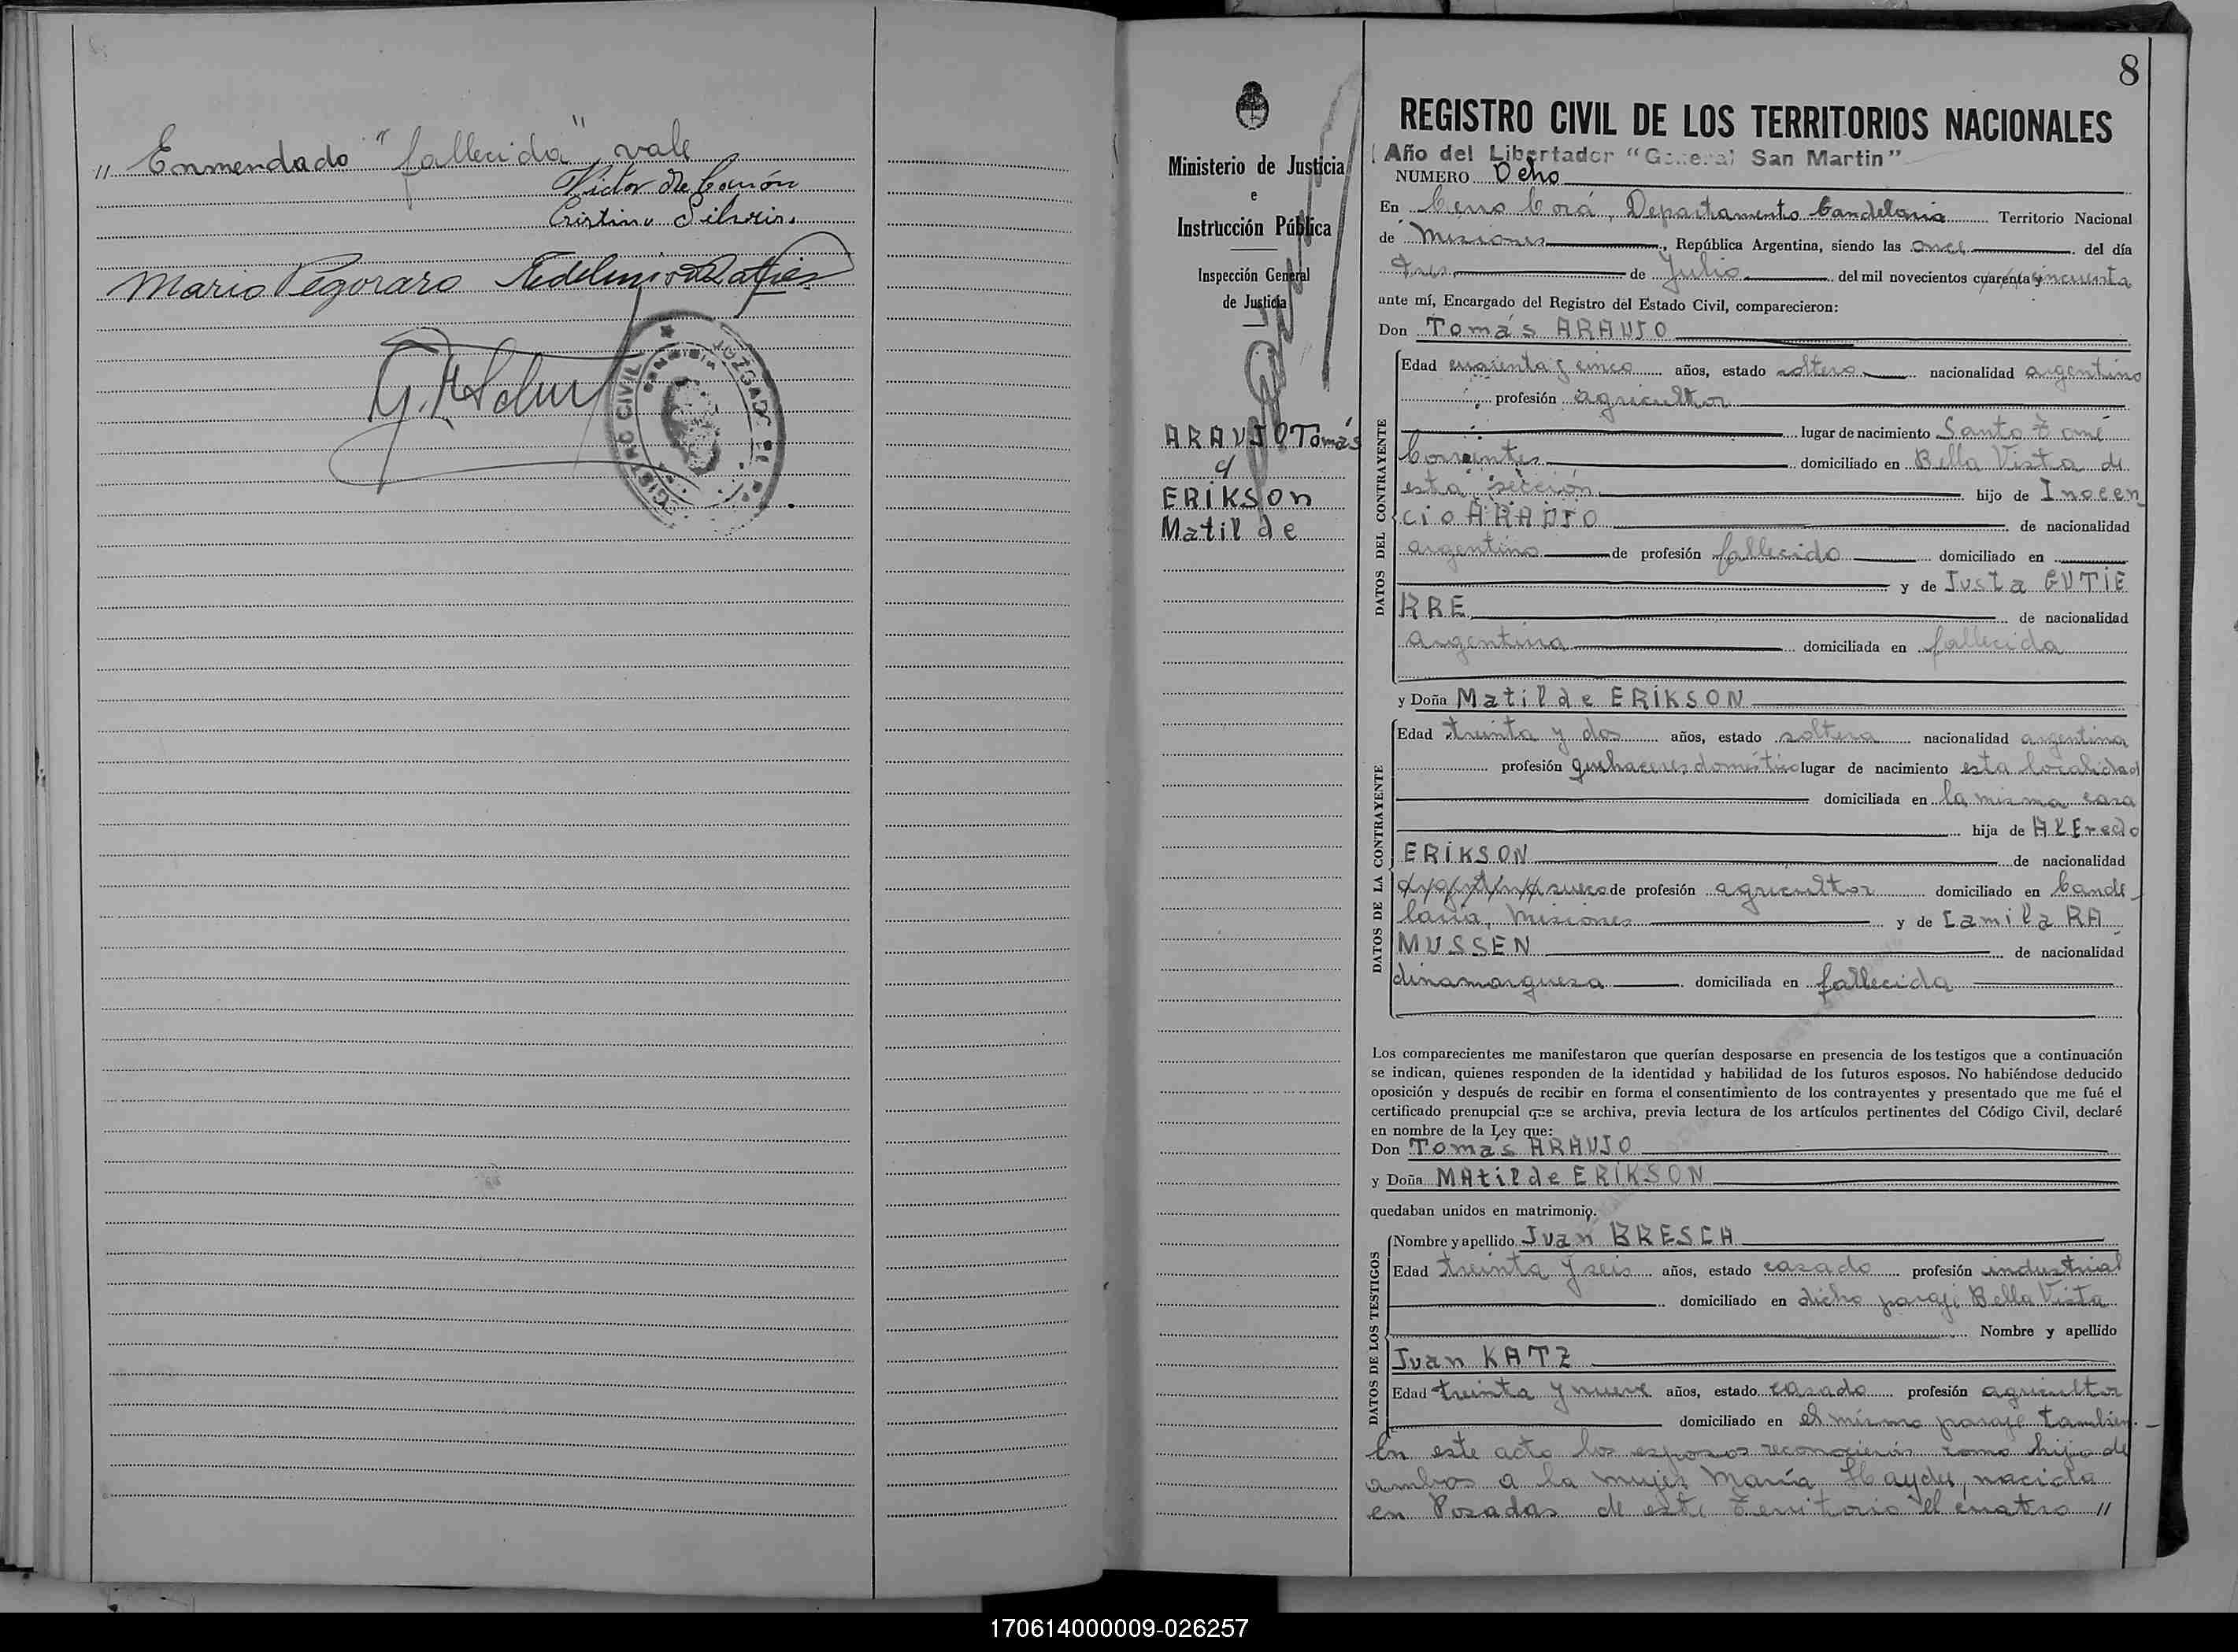 " Enmendado "fallecida" vale
Victor
Cristino Silveira.
Mario Pegoraro
REGISTRO CIVIL
JUZGADO DE PAZ
8
Ministerio de Justicia
e
Instrucción Pública
Inspección General
de Justicia
ARAUJO Tomás
y
ERIKSON
Matilde
REGISTRO CIVIL DE LOS TERRITORIOS NACIONALES
Año del Libertador "General San Martin"
NUMERO Ocho
En Cerro Corá, Departamento Candelaria Territorio Nacional
de Misiones, República Argentina, siendo las once del día
tres de Julio del mil novecientos cuarenta y cincuenta
ante mí, Encargado del Registro del Estado Civil, comparecieron:
Don Tomás ARAUJO
DATOS DEL CONTRAYENTE
Edad cuarenta y cinco años, estado soltero nacionalidad argentino
profesión agricultor
lugar de nacimiento Santo Tomé
Corrientes domiciliado en Bella Vista de
esta sección hijo de Inocen
cio ARAUJO de nacionalidad
argentino de profesión fallecido domiciliado en
y de Justa GUTIE
RRE de nacionalidad
argentina domiciliada en fallecida
y Doña Matilde ERIKSON
DATOS DE LA CONTRAYENTE
Edad treinta y dos años, estado soltera nacionalidad argentina
profesión quehaceres doméstico lugar de nacimiento esta localidad
domiciliada en la misma casa
hija de Alfredo
ERIKSON de nacionalidad
argentina sueco de profesión agricultor domiciliado en Cande_
laria, Misiones y de Camila RA_
MUSSEN de nacionalidad
dinamarquesa domiciliada en fallecida
Los comparecientes me manifestaron que querían desposarse en presencia de los testigos que a continuación
se indican, quienes responden de la identidad y habilidad de los futuros esposos. No habiéndose deducido
oposición y después de recibir en forma el consentimiento de los contrayentes y presentado que me fué el
certificado prenupcial que se archiva, previa lectura de los artículos pertinentes del Código Civil, declaré
en nombre de la Ley que:
Don Tomás ARAUJO
y Doña MAtilde ERIKSON
quedaban unidos en matrimonio.
DATOS DE LOS TESTIGOS
Nombre y apellido Juan BRESCH
Edad treinta y seis años, estado casado profesión industrial
domiciliado en dicho paraje Bella Vista
Nombre y apellido
Juan KATZ
Edad treinta y nueve años, estado casado profesión agricultor
domiciliado en el mismo paraje tambien._
En este acto los esposos reconocieron como hija de
ambos a la mujer María Haydee, nacida
en Posadas de este Territorio el cuatro "
170614000009-026257